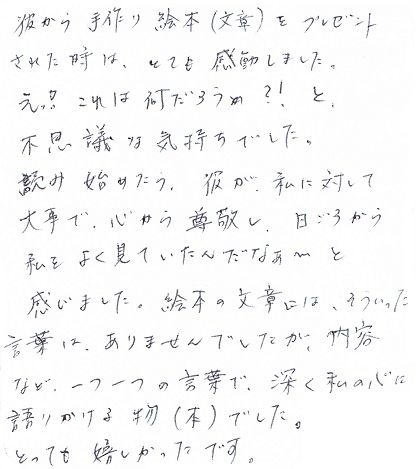 彼から 手作り 絵本(文章)を プレゼント
された時は、とても 感動しました。
えっ?! これは 何だろうか?! と、
不思議な気持ちでした。
読み 始めたら、彼が、私に対して
大事で、心から 尊敬し、日ごろから
私をよく見ていたんだなぁ〜 と
感じました。絵本の文章には、そういった
言葉は、ありませんでしたが、内容
など、一つ一つの言葉で、深く私の心に
語りかける 物(本)でした。
とっても 嬉しかったです。